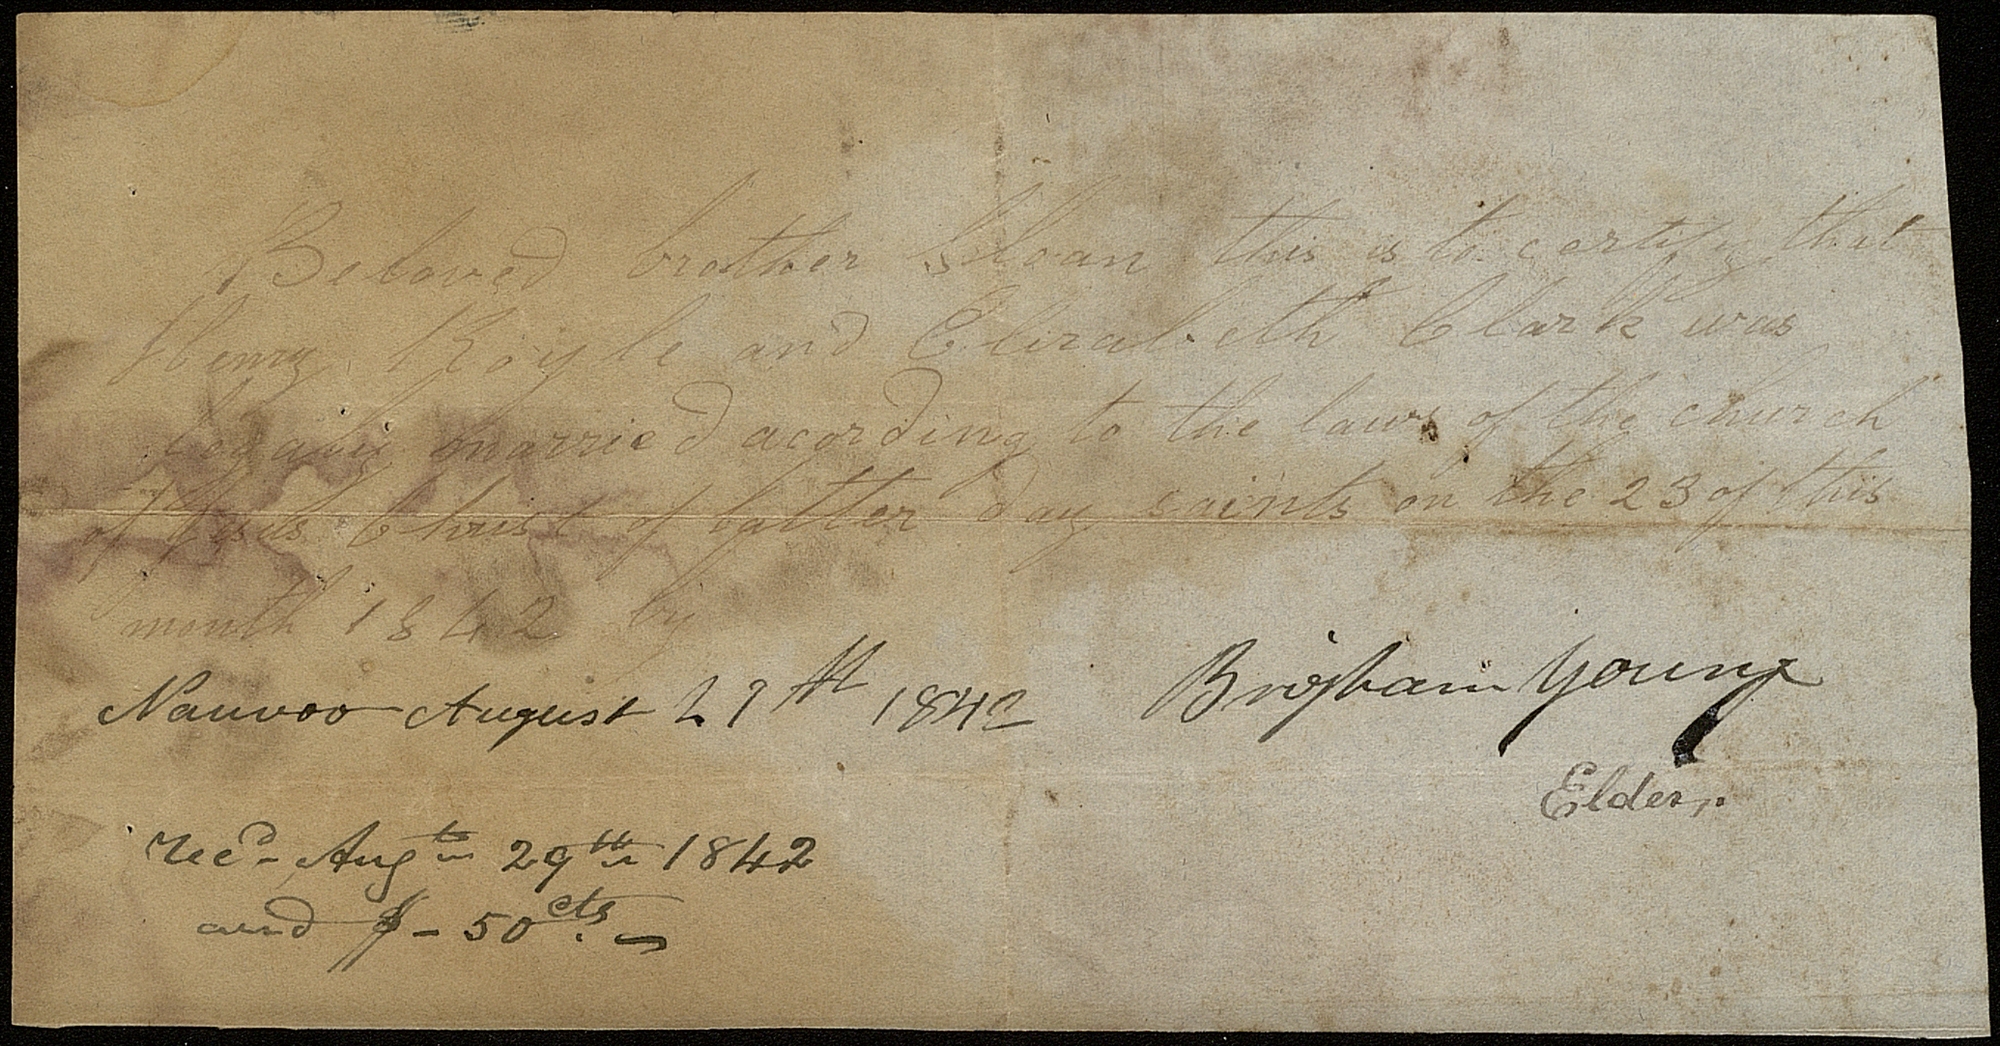 Beloved brother Sloan this is to certify that
Henry Royle and Elizabeth Clark was
legaly married acording to the laws of the church
of Jesus Christ of latter day saints on the 23 of this
month 1842 by
Nauvoo August 29th 1842 Brigham Young
Elder,.
recd- Augt 29th 1842
and $- 50cts.